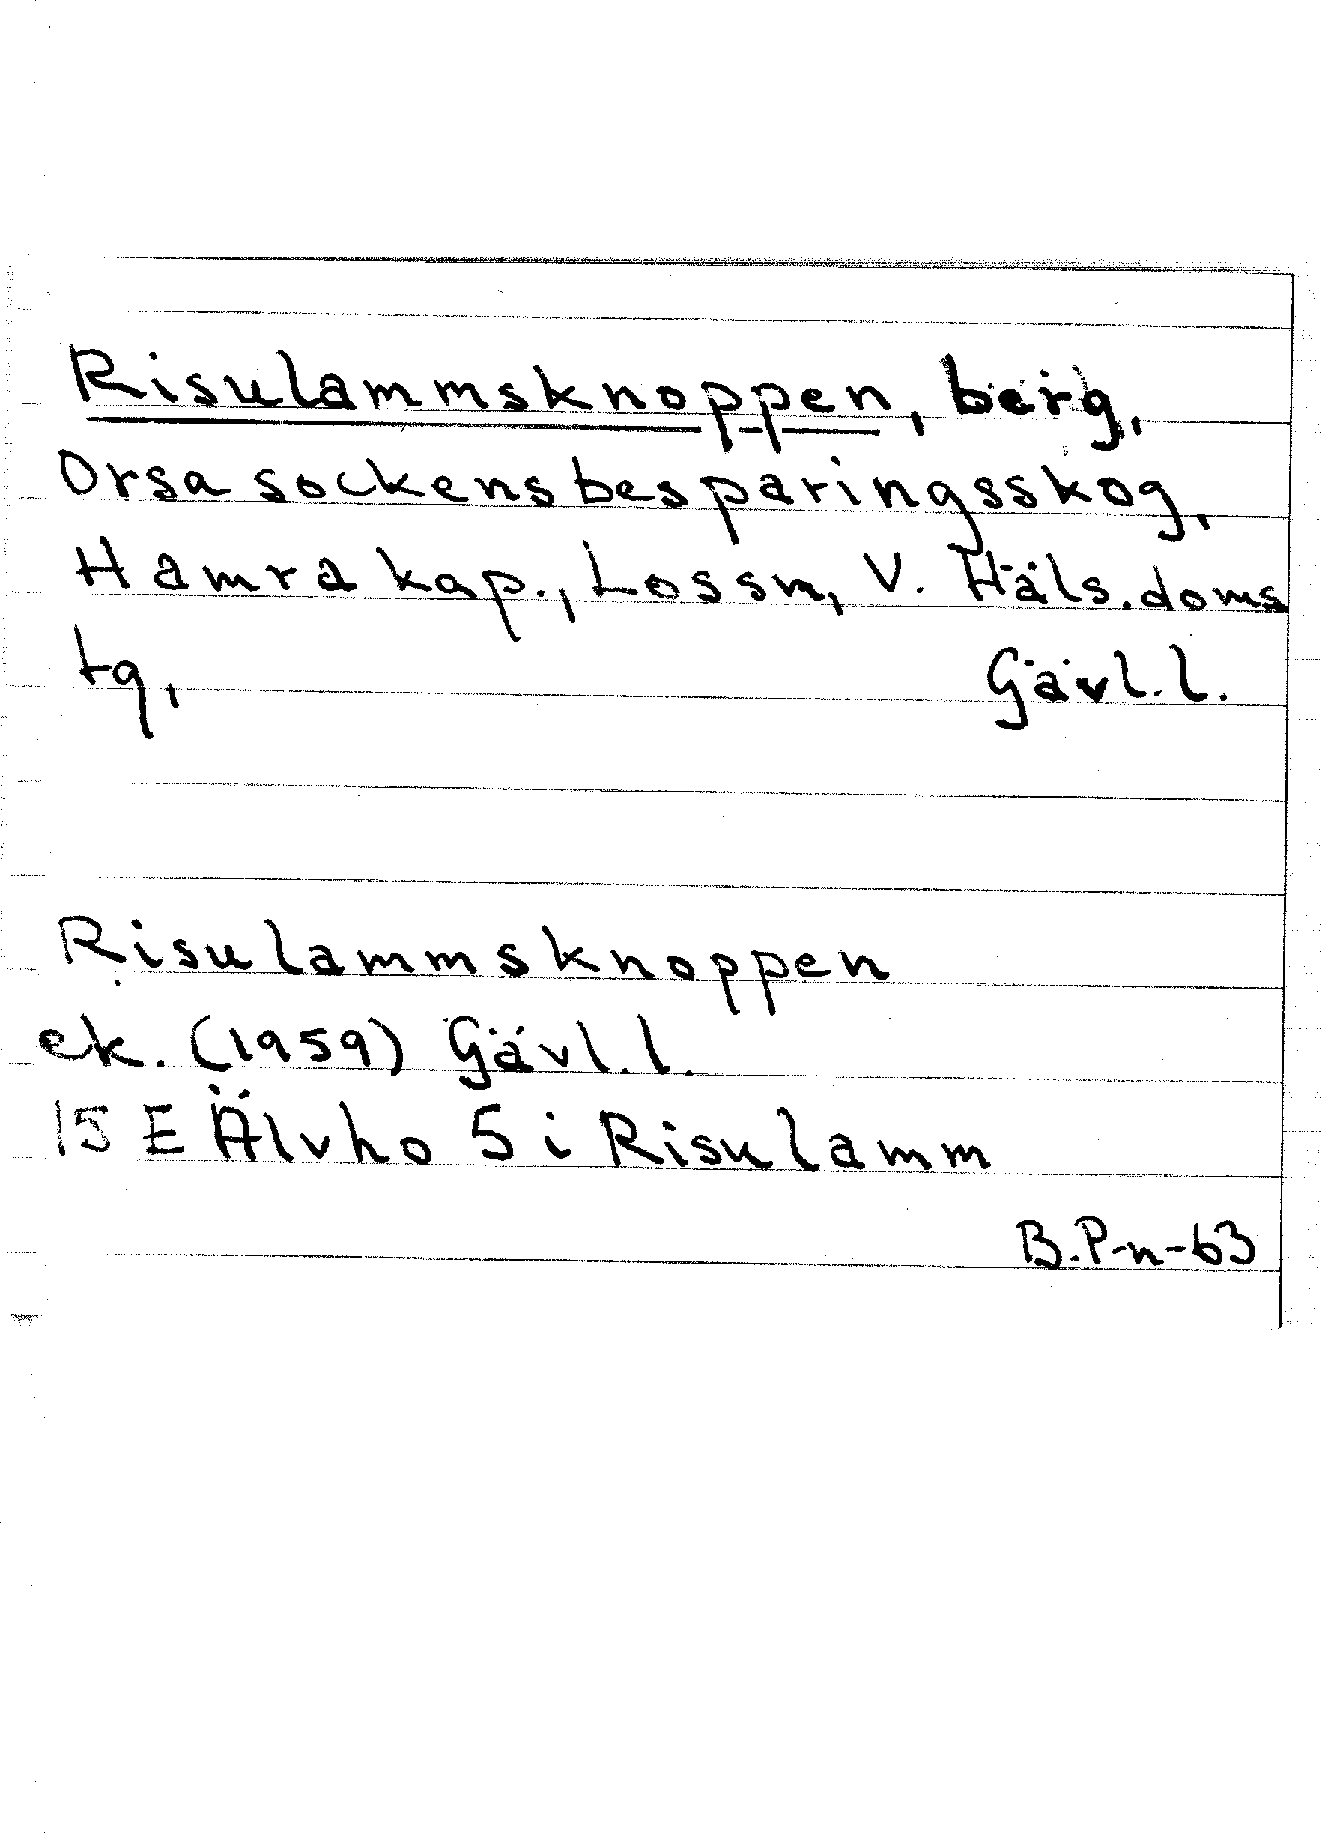 Risulammsknoppen, berg,
Orsa sockensbesparingsskog,
Hamra kap., Los sn, V. Häls. doms
tg, Gävl. l.
Risulammsknoppen
ek. (1959) Gävl. l.
15 E Älvho 5 i Risulamm
B. P-n-63